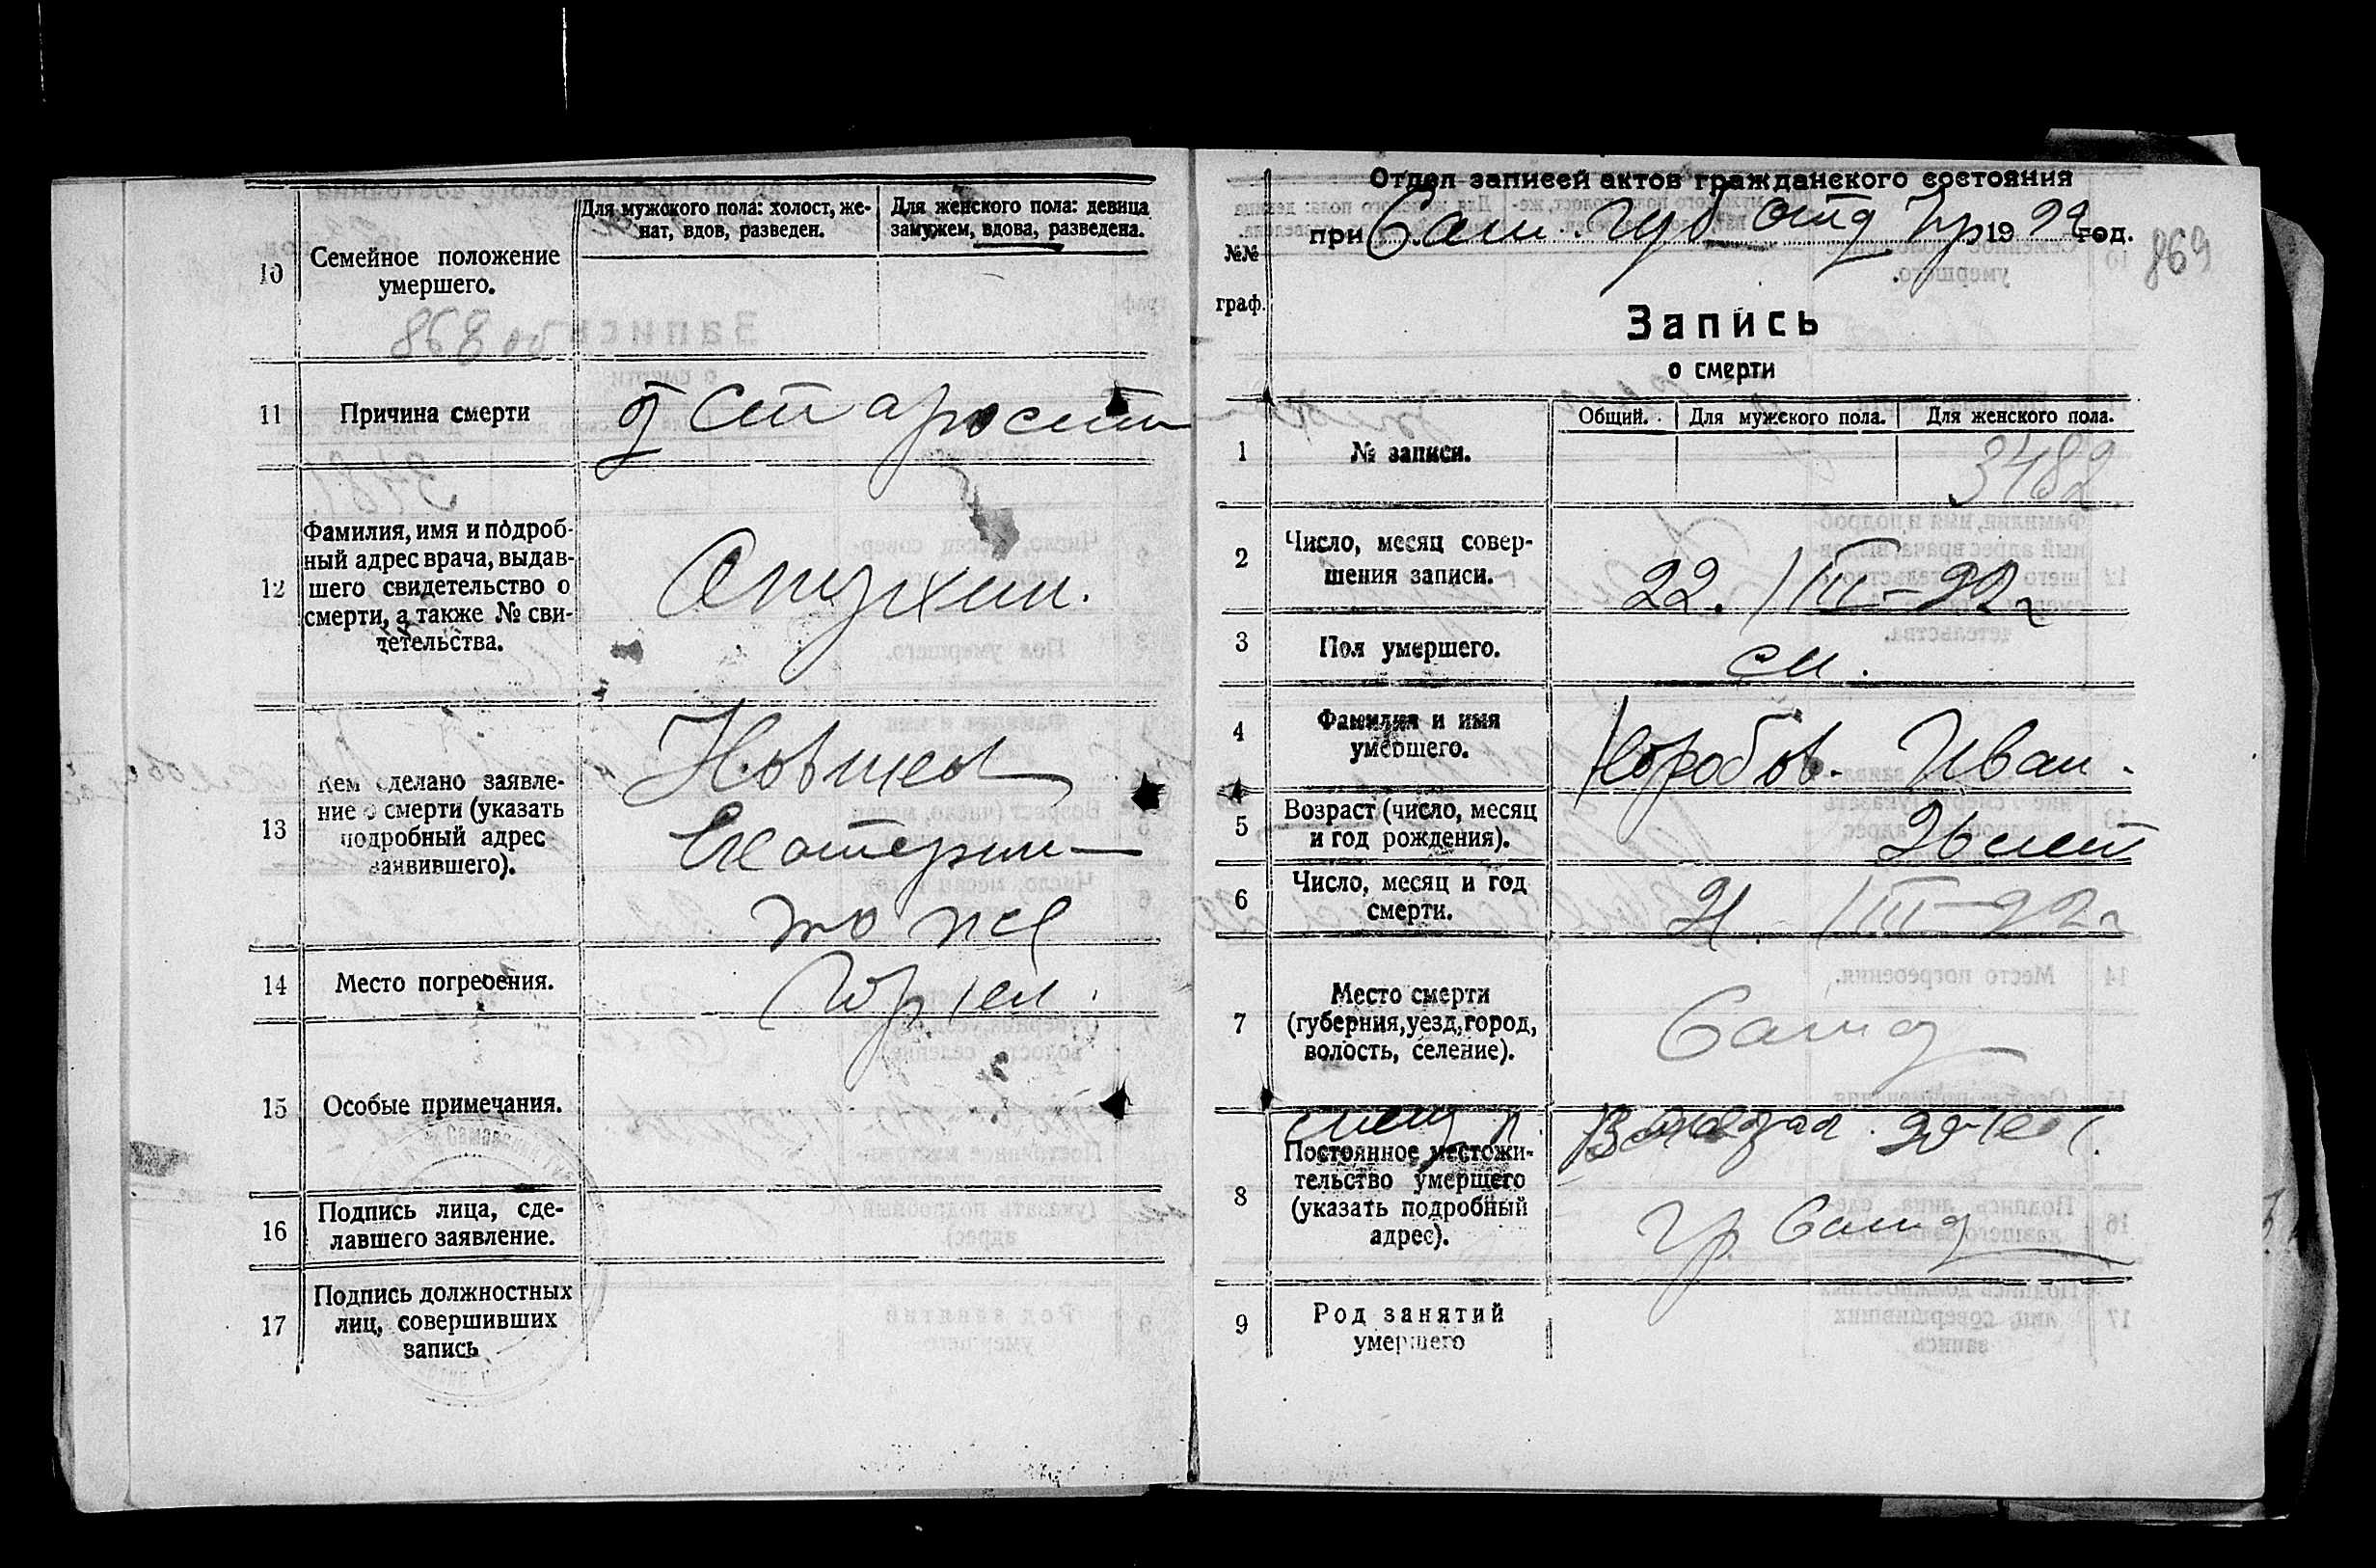 10
Семейное положение
умершего.
Для мужского пола: холост, же-
нат, вдов, разведен.
Для женского пола: девица
замужем, вдова, разведена.
868 об
11
Причина смерти
от старости
12
Фамилия, имя и подроб-
ный адрес врача, выдав-
шего свидетельство о
смерти, а также № сви-
детельства.
Апухтин.
13
Кем сделано заявле-
ние о смерти (указать
подробный адрес
заявившего).
Екатерин
то же
14
Место погребения.
15
Особые примечания.
16
Подпись лица, сде-
лавшего заявление.
17
Подпись должностных
лиц, совершивших
запись
Отдел записей актов гражданского состояния
при Сам. губ. отд. Упр 1922 год.
869
№№
граф.
Запись
о смерти
1
№ записи.
Общий.
Для мужского пола.
Для женского пола.
3482
2
Число, месяц совер-
шения записи.
22. III-22 г
3
Пол умершего.
м.
4
Фамилия и имя
умершего.
Коробов. Иван.
5
Возраст (число, месяц
и год рождения).
лет
6
Число, месяц и год
смерти.
21. III-22 г
7
Место смерти
(губерния, уезд, город,
волость, селение).
Самар
8
Постоянное местожи-
тельство умершего
(указать подробный
адрес).
гр. Самар
9
Род занятий
умершего